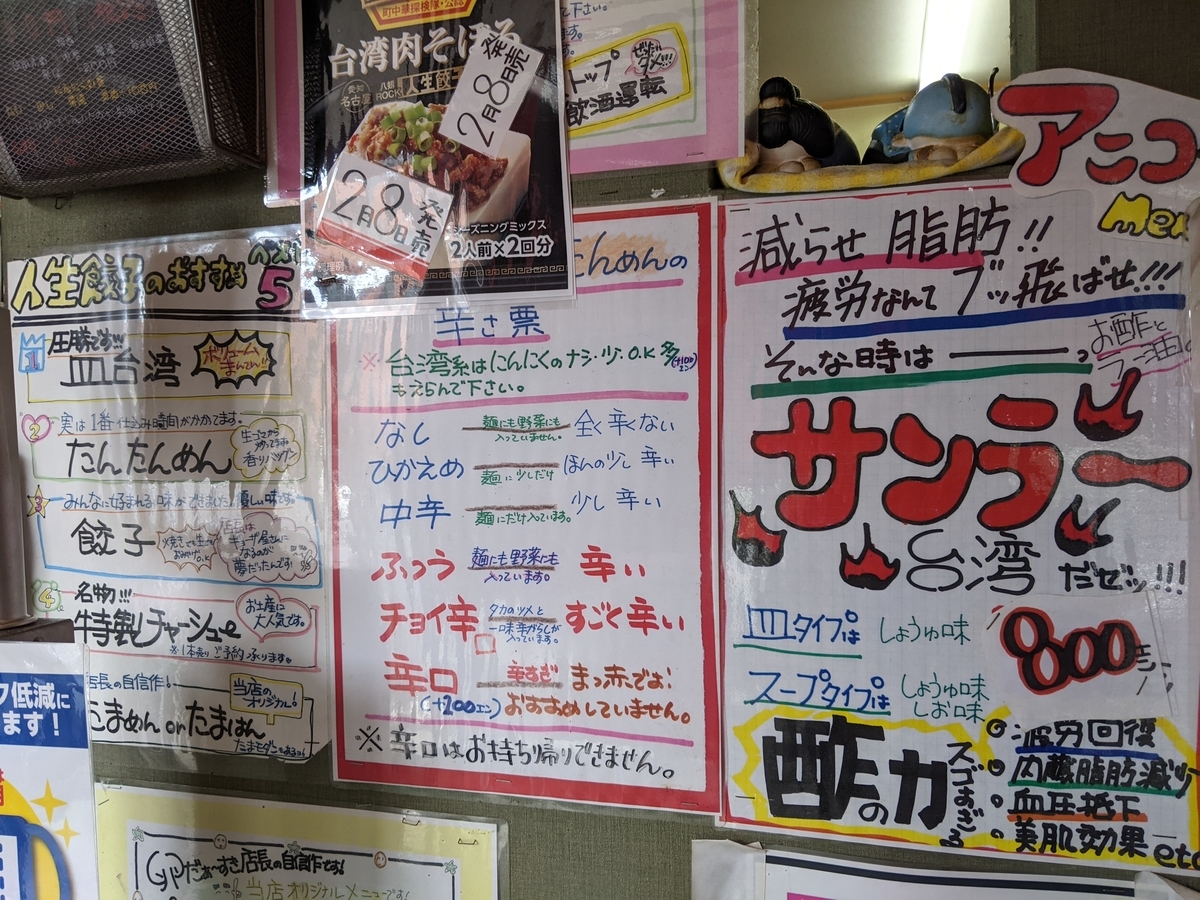 町中華探検隊・公認
台湾肉そぼろ
名古屋
八剱ROCK
人生餃子
2月8日発売
2月8日発売
シーズニングミックス
2人前×2回分
ストップ
飲酒運転
ぜったいダメ!!!
アニコ
Men
人生餃子のおすすめベスト5
1
圧勝です!!!
皿台湾
ボリュームまんてん!!
2
実は1番仕込み時間がかかってます。
たんたんめん
生ゴマから
炒ってます
香りバツグン
3
みんなに好まれる味ができました!優しい味です。
餃子
焼きでも生でも
店長は
ギョーザ屋さんに
なるのが
夢だったんです!
4
名物!!!
特製チャーシュー
お土産に
大人気です。
※1本売りご予約承ります。
店長の自信作!
たまめん or たまはん
当店の
オリジナル!
たんめんの
辛さ票
※台湾系はにんにくのナシ・少・O.K 多(+100エン)
もえらんで下さい。
なし 麺にも野菜にも入っていません。 全く辛くない
ひかえめ 麺に少しだけ ほんの少し辛い
中辛 麺にだけ入っています。 少し辛い
ふつう 麺にも野菜にも入っています。 辛い
チョイ辛 タカのツメと一味辛がらしが入っています。 すごく辛い
辛口 辛すぎ まっ赤です!
(+200エン) おすすめしていません。
※辛口はお持ち帰りできません。
減らせ 脂肪!!
疲労なんて ブッ飛ばせ!!!
そんな時は
お酢と
サンラー
台湾 だぜッ!!!
皿タイプは しょうゆ味
800
スープタイプは しょうゆ味
しお味
酢の力
スゴすぎる
疲労回復
内蔵脂肪減少
血圧抵下
美肌効果 etc
低減に
ます!
店長の自信作です!
当店オリジナルメニューです!